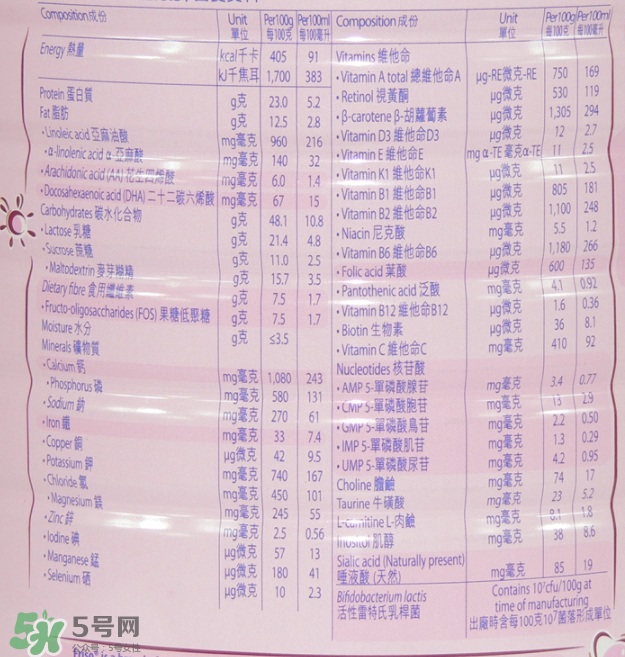 Composition成份 Unit 單位 Per100g 每100克 Per100ml 每100毫升
Energy 熱量 kcal千卡 405 91
kJ千焦耳 1,700 383
Protein 蛋白質 g克 23.0 5.2
Fat 脂肪 g克 12.5 2.8
•Linoleic acid 亞麻油酸 mg毫克 960 216
•α-linolenic acid α-亞麻酸 mg毫克 140 32
•Arachidonic acid (AA) 花生四烯酸 mg毫克 6.0 1.4
•Docosahexaenoic acid (DHA) 二十二碳六烯酸 mg毫克 67 15
Carbohydrates 碳水化合物 g克 48.1 10.8
•Lactose 乳糖 g克 21.4 4.8
•Sucrose 蔗糖 g克 11.0 2.5
•Maltodextrin 麥芽糊精 g克 15.7 3.5
Dietary fibre 食用纖維素 g克 7.5 1.7
•Fructo-oligosaccharides (FOS) 果糖低聚糖 g克 7.5 1.7
Moisture 水分 g克 ≤3.5
Minerals 礦物質
•Calcium 鈣 mg毫克 1,080 243
•Phosphorus 磷 mg毫克 580 131
•Sodium 鈉 mg毫克 270 61
•Iron 鐵 mg毫克 33 7.4
•Copper 銅 µg微克 42 9.5
•Potassium 鉀 mg毫克 740 167
•Chloride 氯 mg毫克 450 101
•Magnesium 鎂 mg毫克 245 55
•Zinc 鋅 mg毫克 2.5 0.56
•Iodine 碘 µg微克 57 13
•Manganese 錳 µg微克 180 41
•Selenium 硒 µg微克 10 2.3
Composition 成份 Unit 單位 Per100g 每100克 Per100ml 每100毫升
Vitamins 維他命
•Vitamin A total 總維他命A µg-RE微克-RE 750 169
•Retinol 視黃醇 µg微克 530 119
•β-carotene β-胡蘿蔔素 µg微克 1,305 294
•Vitamin D3 維他命D3 µg微克 12 2.7
•Vitamin E 維他命E mg α-TE 毫克α-TE 11 2.5
•Vitamin K1 維他命K1 µg微克 11 2.5
•Vitamin B1 維他命B1 µg微克 805 181
•Vitamin B2 維他命B2 µg微克 1,100 248
•Niacin 尼克酸 mg毫克 5.5 1.2
•Vitamin B6 維他命B6 µg微克 1,180 266
•Folic acid 葉酸 µg微克 600 135
•Pantothenic acid 泛酸 mg毫克 4.1 0.92
•Vitamin B12 維他命B12 µg微克 1.6 0.36
•Biotin 生物素 µg微克 36 8.1
•Vitamin C 維他命C mg毫克 410 92
Nucleotides 核苷酸
•AMP 5-單磷酸腺苷 mg毫克 3.4 0.77
•CMP 5-單磷酸胞苷 mg毫克 13 2.9
•GMP 5-單磷酸鳥苷 mg毫克 2.2 0.50
•IMP 5-單磷酸肌苷 mg毫克 1.3 0.29
•UMP 5-單磷酸尿苷 mg毫克 4.2 0.95
Choline 膽鹼 mg毫克 74 17
Taurine 牛磺酸 mg毫克 23 5.2
L-carnitine L-肉鹼 mg毫克 8.1 1.8
Inositol 肌醇 mg毫克 38 8.6
Sialic acid (Naturally present)
唾液酸 (天然) mg毫克 85 19
Bifidobacterium lactis Contains 10⁷cfu/100g at
活性雷特氏乳桿菌 time of manufacturing
出廠時含每100克10⁷菌落形成單位
5号网
公众号·5号女性